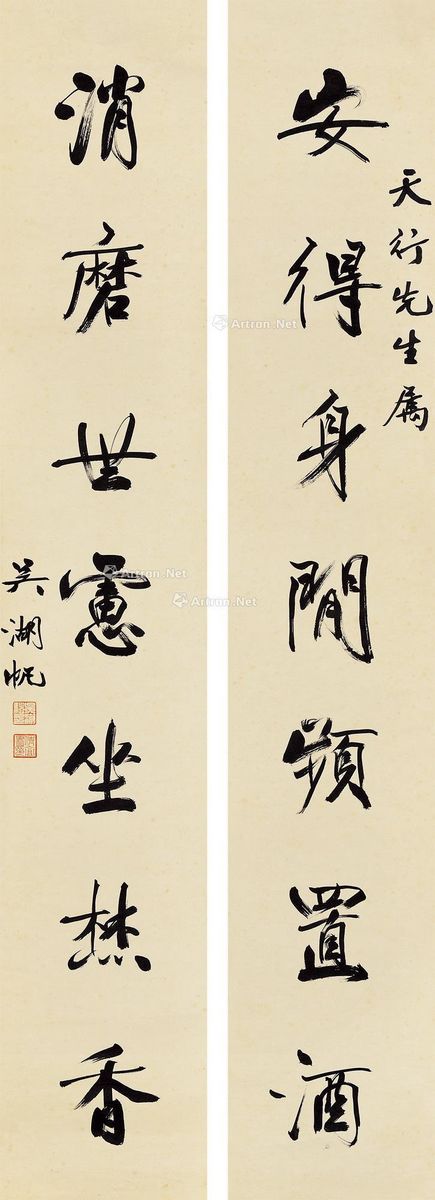 天行先生属
安得身閒頻置酒
消磨世慮坐焚香
吴湖帆
Artron.Net
Artron.Net
Artron.Net